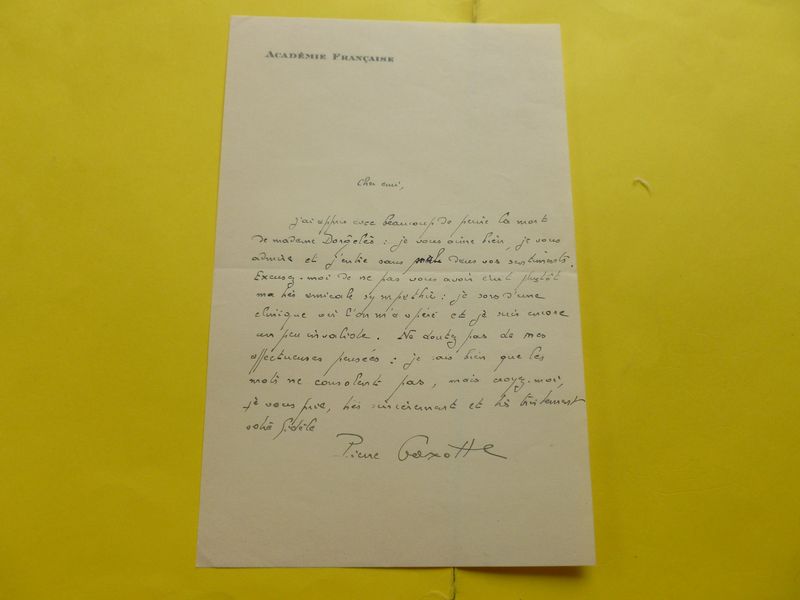 ACADÉMIE FRANÇAISE
Cher ami,
j'ai appris avec beaucoup de peine la mort
de madame Dorgelès : je vous aime bien, je vous
admire et j'entre sans dans vos sentiments.
Excusez-moi de ne pas vous avoir écrit plutôt
ma très amicale sympathie : je sors d'une
clinique où l'on m'a opéré et je suis encore
un peu invalide. Ne doutez pas de mes
affectueuses pensées : je sais bien que les
mots ne consolent pas, mais croyez-moi,
je vous prie, très sincèrement et très tristement
votre fidèle
Pierre Gaxotte